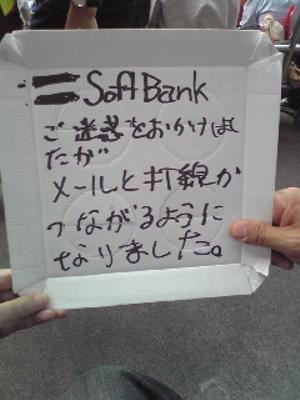 SoftBank
ご迷惑をおかけしまし
たが
メールと打線が
つながるように
なりました。